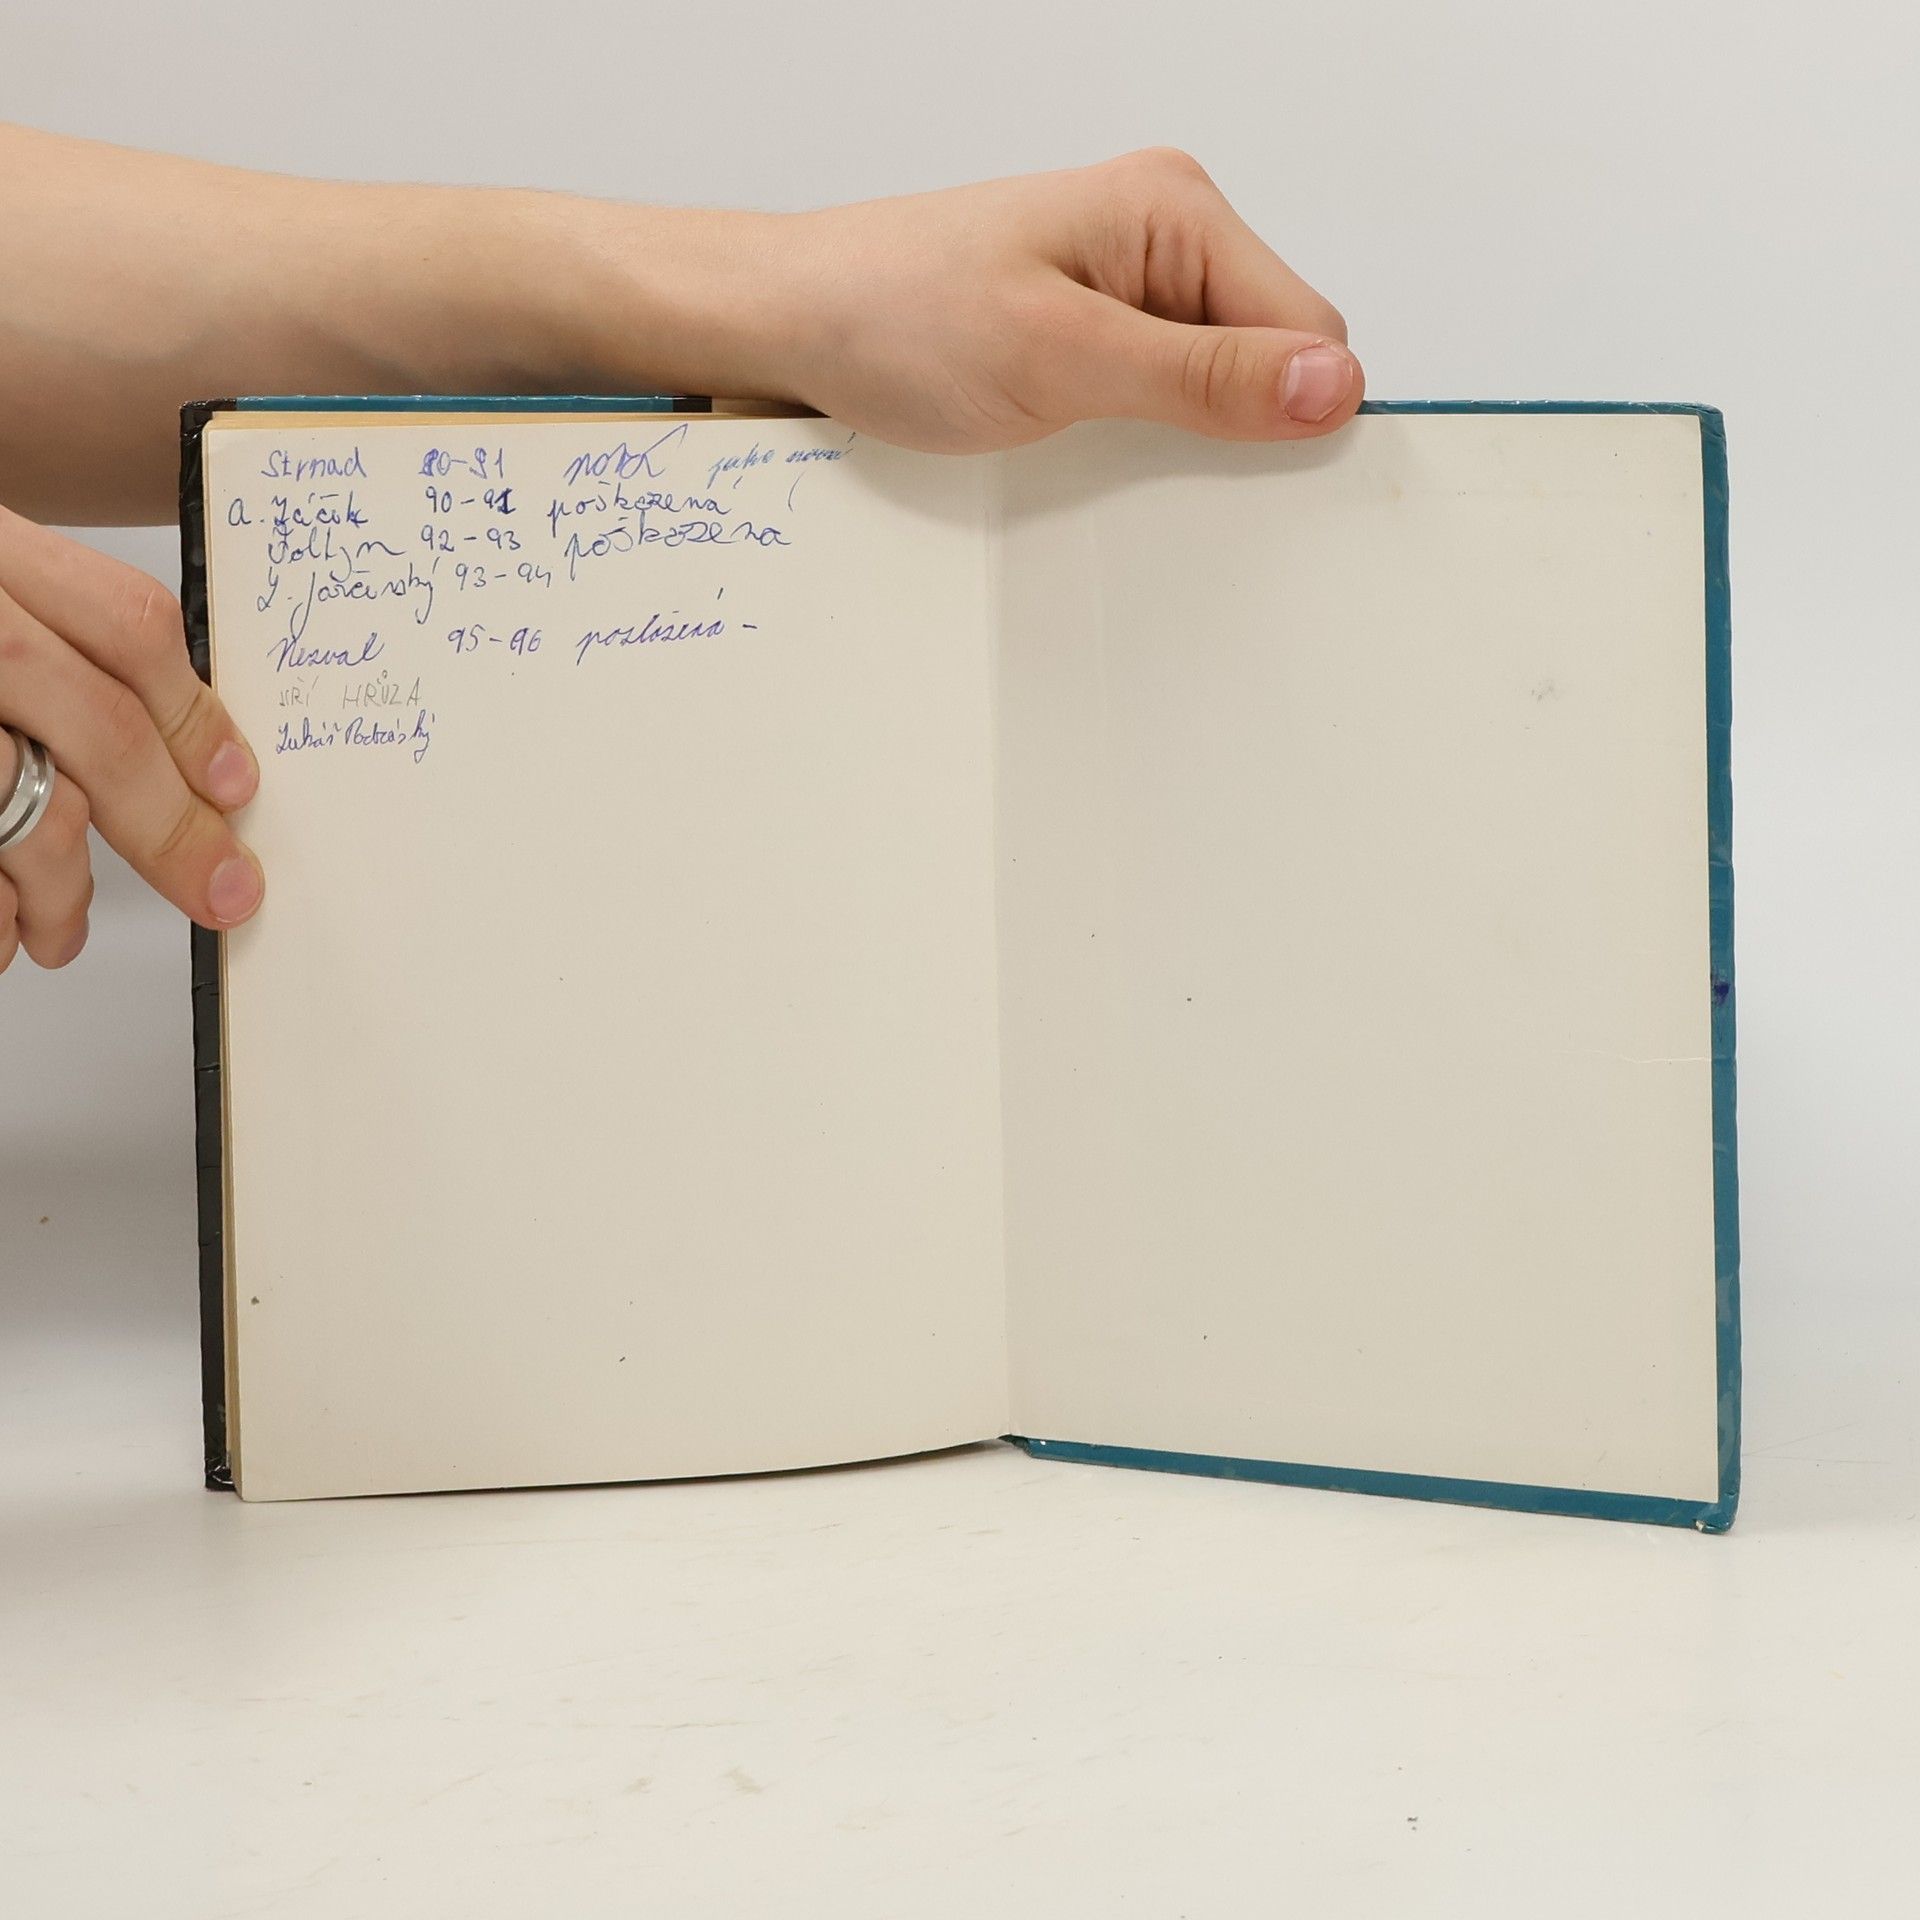 Strnad 90-91 nová jako nová
A. Žáčik 90-91 poškozená
92-93 poškozena
93-94
Nezval 95-96
JIŘÍ HRŮZA
Lukáš